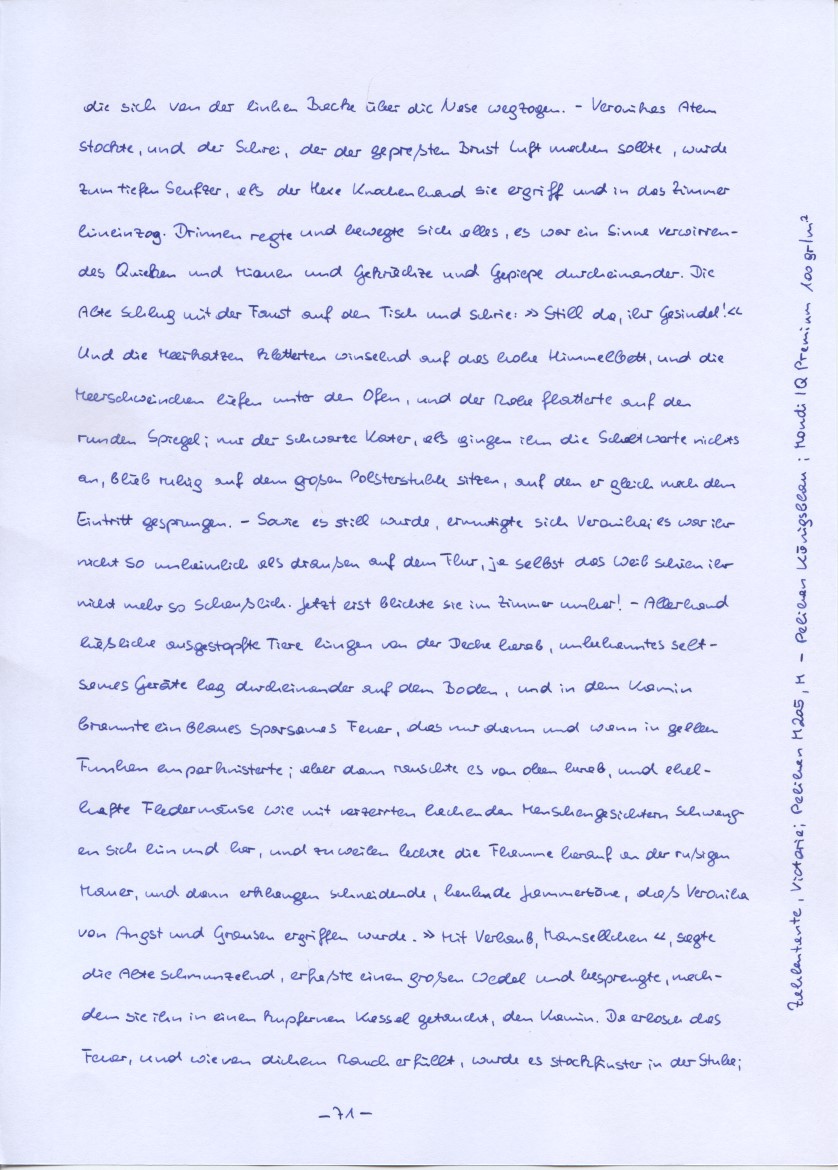 die sich von der linken Backe über die Nase wegzogen. – Veronikas Atem
stockte, und der Schrei, der der gepreßten Brust Luft machen sollte, wurde
zum tiefen Seufzer, als der Hexe Knochenhand sie ergriff und in das Zimmer
hineinzog. Drinnen regte und bewegte sich alles, es war ein Sinne verwirren-
des Quieken und Miauen und Gekrächze und Gepiepe durcheinander. Die
Alte schlug mit der Faust auf den Tisch und schrie: »Still da, ihr Gesindel!«
Und die Meerkatzen kletterten winselnd auf das hohe Himmelbett, und die
Meerschweinchen liefen unter den Ofen, und der Rabe flatterte auf den
runden Spiegel; nur der schwarze Kater, als gingen ihn die Scheltworte nichts
an, blieb ruhig auf dem großen Polsterstuhle sitzen, auf den er gleich nach dem
Eintritt gesprungen. – Sowie es still wurde, ermutigte sich Veronika; es war ihr
nicht so unheimlich als draußen auf dem Flur, ja selbst das Weib schien ihr
nicht mehr so scheußlich. Jetzt erst blickte sie im Zimmer umher! – Allerhand
häßliche ausgestopfte Tiere hingen von der Decke herab, unbekanntes selt-
sames Geräte lag durcheinander auf dem Boden, und in dem Kamin
brannte ein blaues sparsames Feuer, das nur dann und wann in gelben
Funken emporknisterte; aber dann rauschte es von oben herab, und ekel-
hafte Fledermäuse wie mit verzerrten lachenden Menschengesichtern schwang-
en sich hin und her, und zuweilen leckte die Flamme herauf an der rußigen
Mauer, und dann erklangen schneidende, heulende Jammertöne, daß Veronika
von Angst und Grausen ergriffen wurde. »Mit Verlaub, Mamsellchen«, sagte
die Alte schmunzelnd, erfaßte einen großen Wedel und besprengte, nach-
dem sie ihn in einen kupfernen Kessel getaucht, den Kamin. Da erlosch das
Feuer, und wie von dickem Rauch erfüllt, wurde es stockfinster in der Stube;
– 71 –
Zahlentante, Victoria; Pelikan M205, M – Pelikan Königsblau; Mondi IQ Premium 100 gr/m²